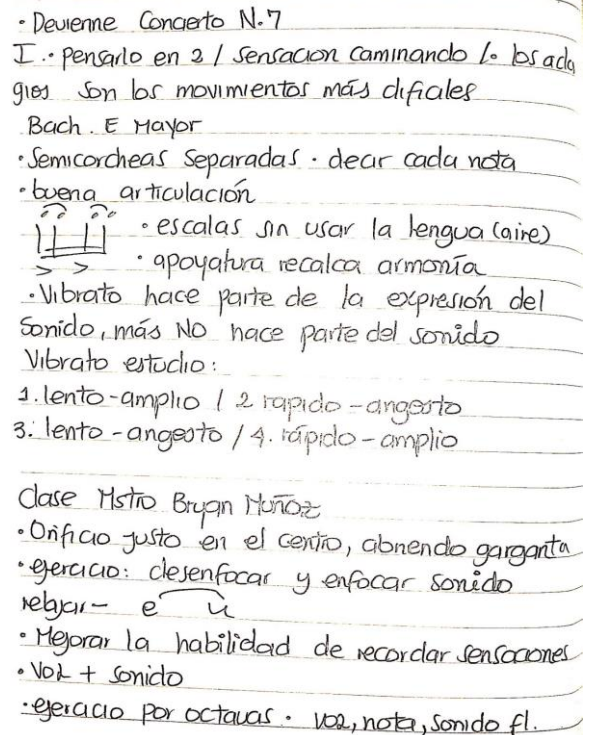 · Devienne Concierto N.7
I.· pensarlo en 2 / sensacion caminando /. los ada
gios son los movimientos más dificiales
Bach. E Mayor
· Semicorcheas Separadas · decir cada nota
· buena articulación
· escalas sin usar la lengua (aire)
> > · apoyatura recalca armonía
· Vibrato hace parte de la expresión del
Sonido, más NO hace parte del sonido
Vibrato estudio:
1. lento-amplio / 2 rapido-angosto
3. lento-angosto / 4. rápido-amplio
Clase Mstro Bryan Muñoz
· Orificio justo en el centro, abriendo garganta
· ejercicio: desenfocar y enfocar sonido
relajar- e u
· Mejorar la habilidad de recordar sensaciones
· Voz + sonido
· ejercicio por octavas · voz, nota, sonido fl.